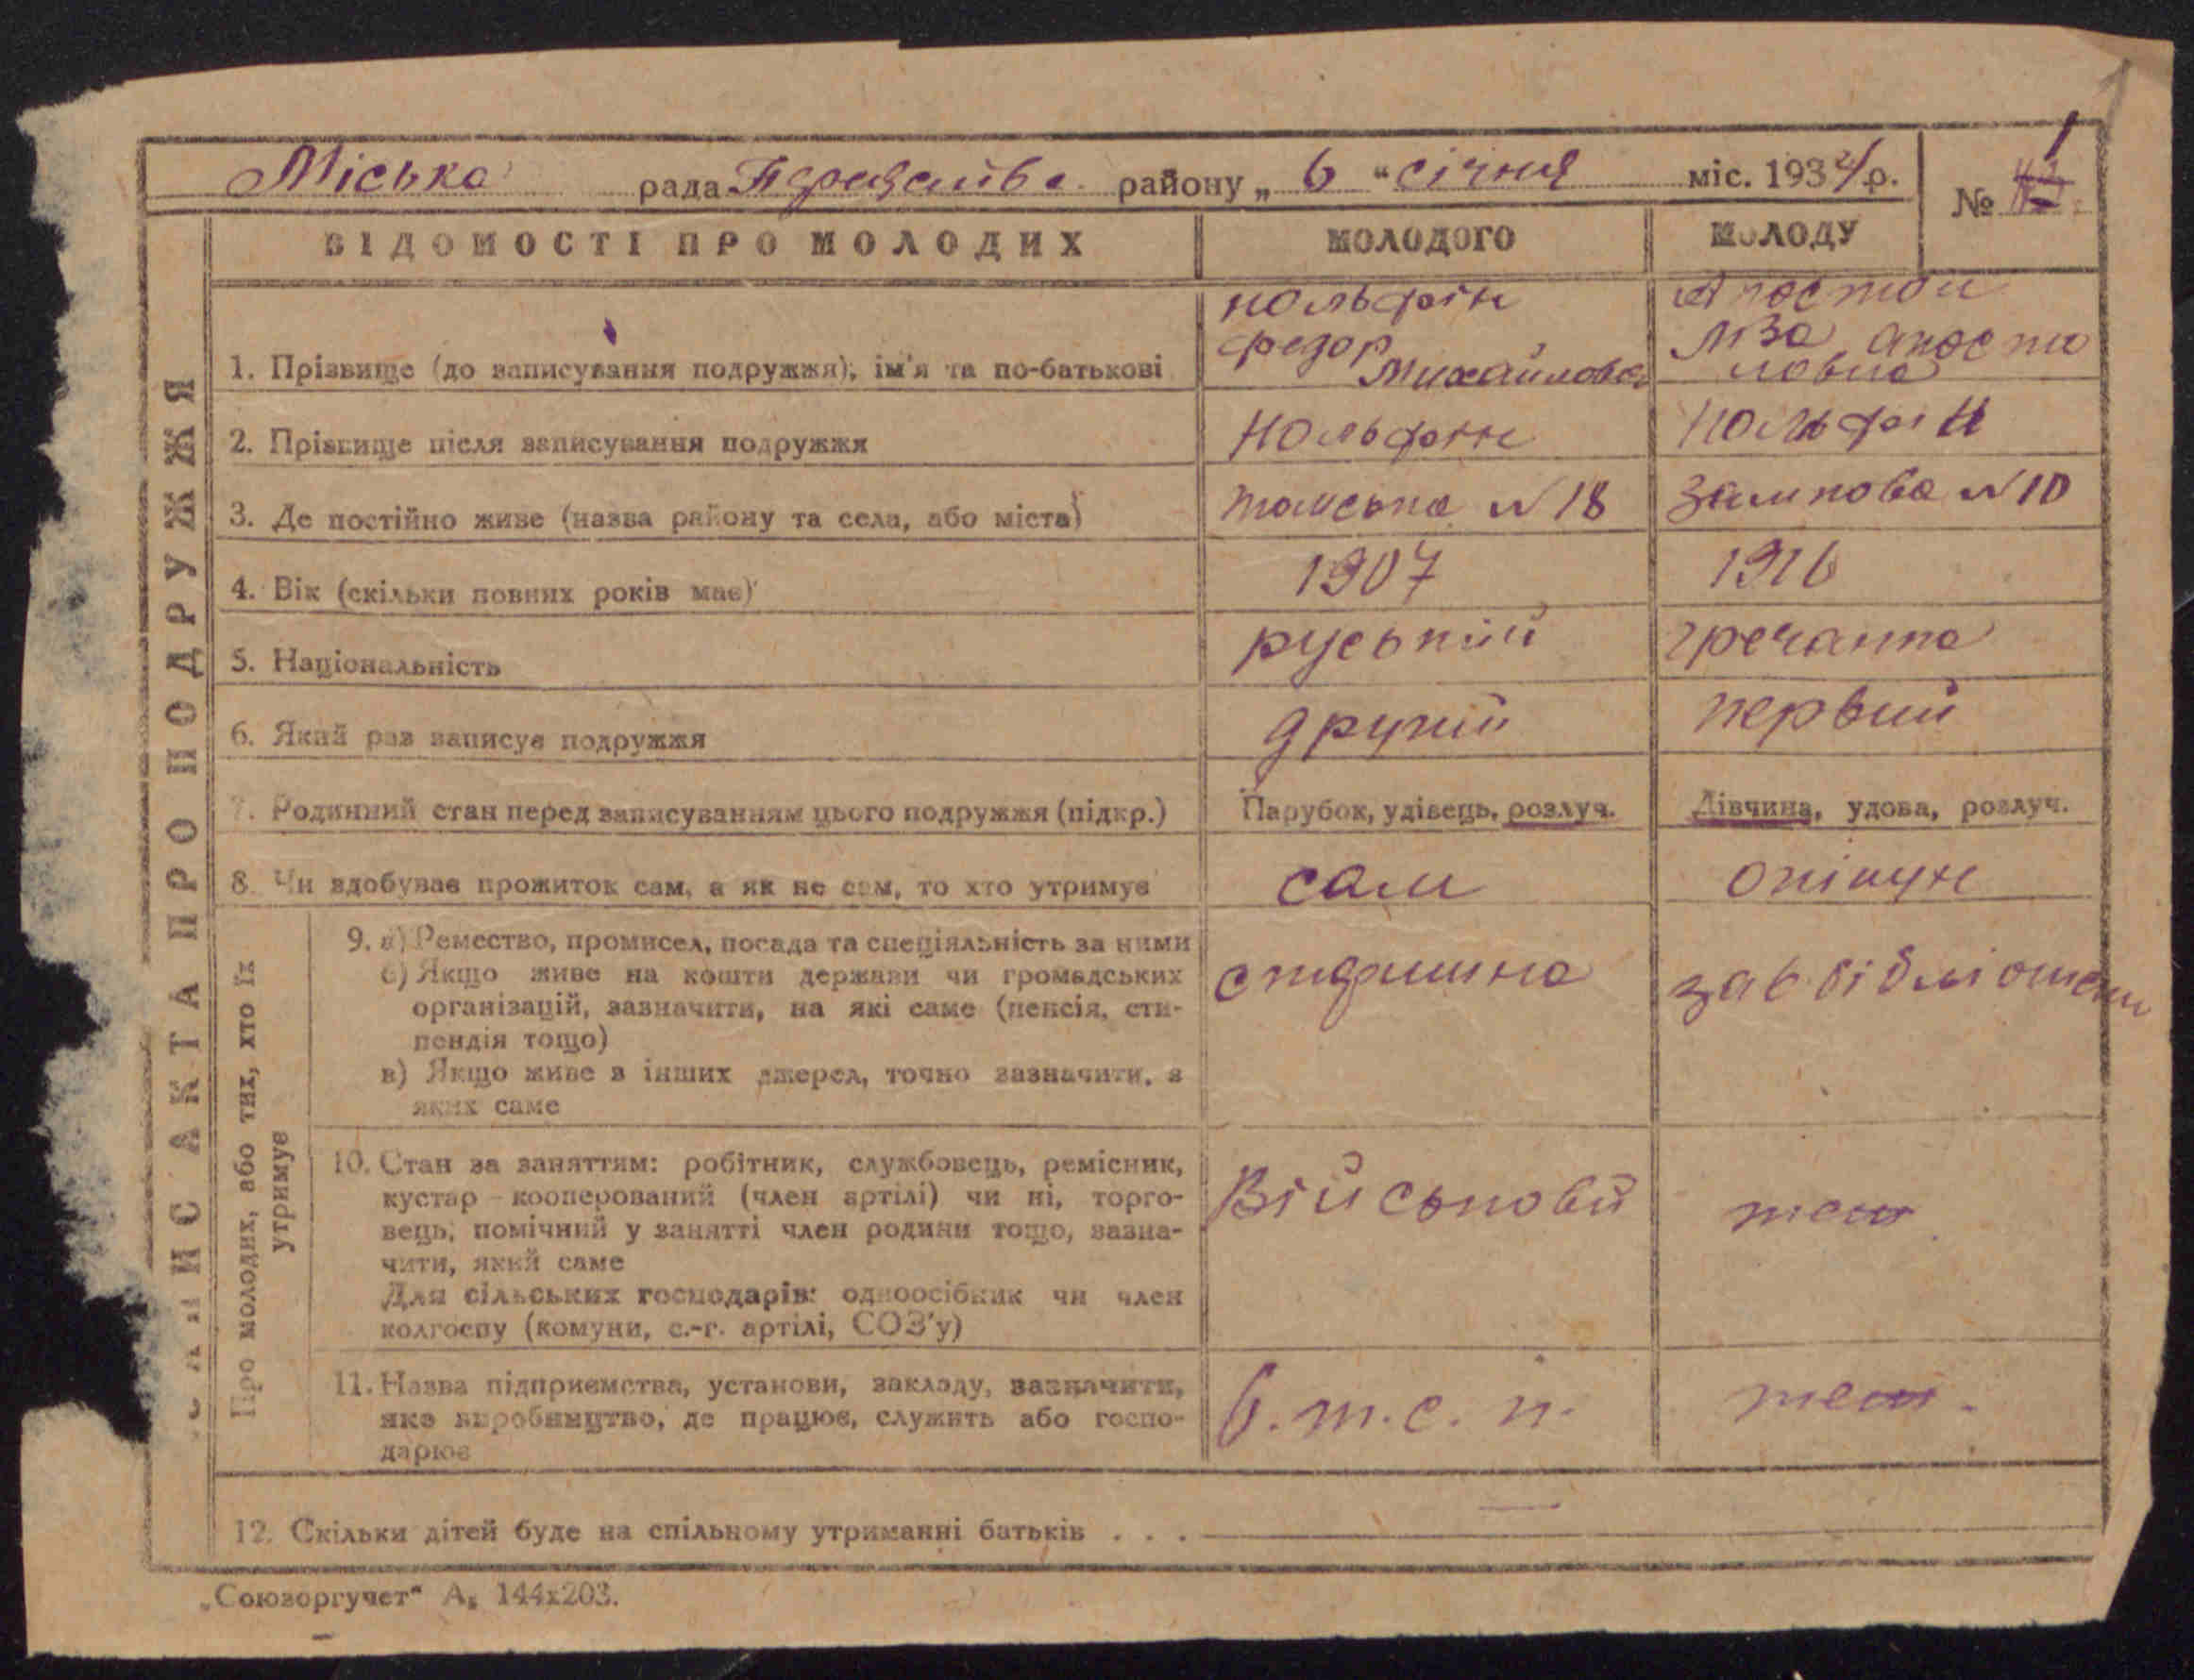 Міська рада району „ 6 “ січня міс. 1934 р. № 1
ЗАПИС АКТА ПРО ПОДРУЖЖЯ
ВІДОМОСТІ ПРО МОЛОДИХ МОЛОДОГО МОЛОДУ
1. Прізвище (до записування подружжя); ім'я та по-батькові
Нольфін
Федор
Михайлович
Апостол
Ліза Апосто
ловна
2. Прізвище після записування подружжя Нольфін Нольфін
3. Де постійно живе (назва району та села, або міста) N 18 N 10
4. Вік (скільки повних років має) 1907 1916
5. Національність руський гречанка
6. Який раз записує подружжя другий первий
7. Родинний стан перед записуванням цього подружжя (підкр.) Парубок, удівець, розлуч. Дівчина, удова, розлуч.
8. Чи здобуває прожиток сам, а як не сам, то хто утримує сам опікун
Про молодих, або тих, хто їх
утримує
9. а) Ремество, промисел, посада та спеціяльність за ними
б) Якщо живе на кошти держави чи громадських
організацій, зазначити, на які саме (пенсія, сти-
пендія тощо)
в) Якщо живе з інших джерел, точно зазначити, з
яких саме
старшина
зав бібліотеки
10. Стан за заняттям: робітник, службовець, ремісник,
кустар – кооперований (член артілі) чи ні, торго-
вець, помічний у занятті член родини тощо, зазна-
чити, який саме
Для сільських господарів: одноосібник чи член
колгоспу (комуни, с.-г. артілі, СОЗ'у)
Військовий
11. Назва підприємства, установи, закладу, зазначити,
яке виробництво, де працює, служить або госпо-
дарює
12. Скільки дітей буде на спільному утриманні батьків . . . —
„Союзоргучет“ А₅ 144х203.